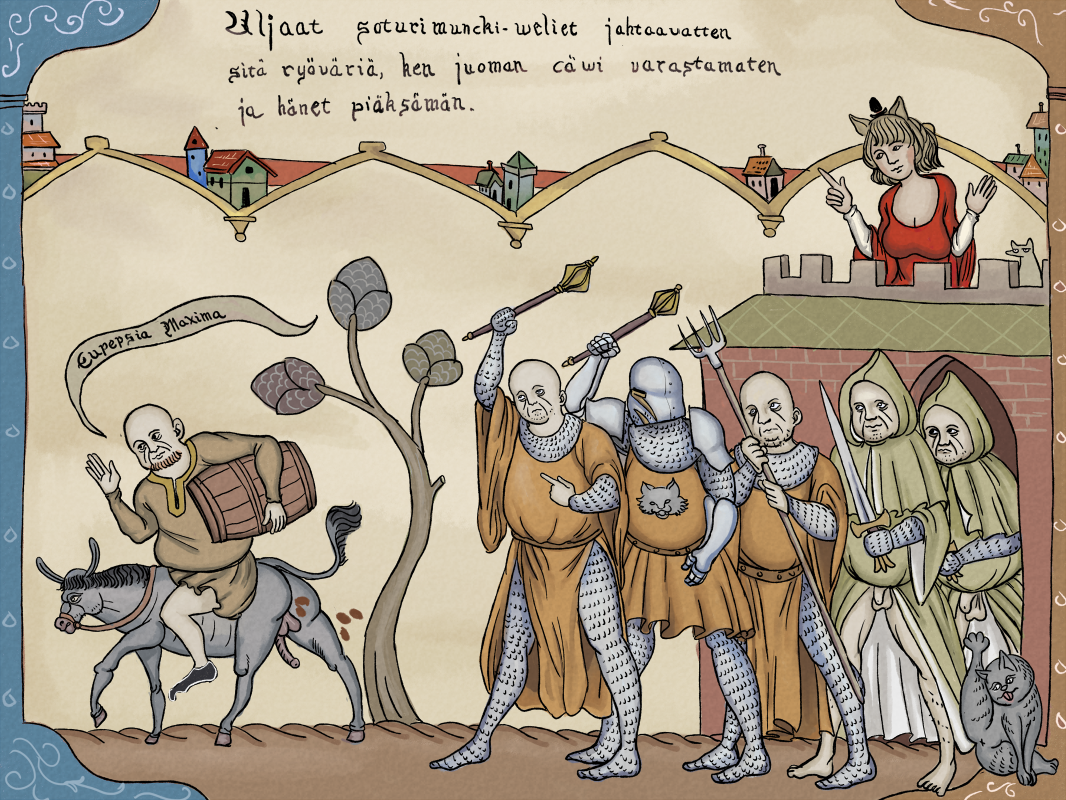 Uljaat soturimuncki-weliet jahtaavatten
sitä ryöväriä, ken juoman cäwi varastamaten
ja hänet piäksämän.
Eupepsia Maxima